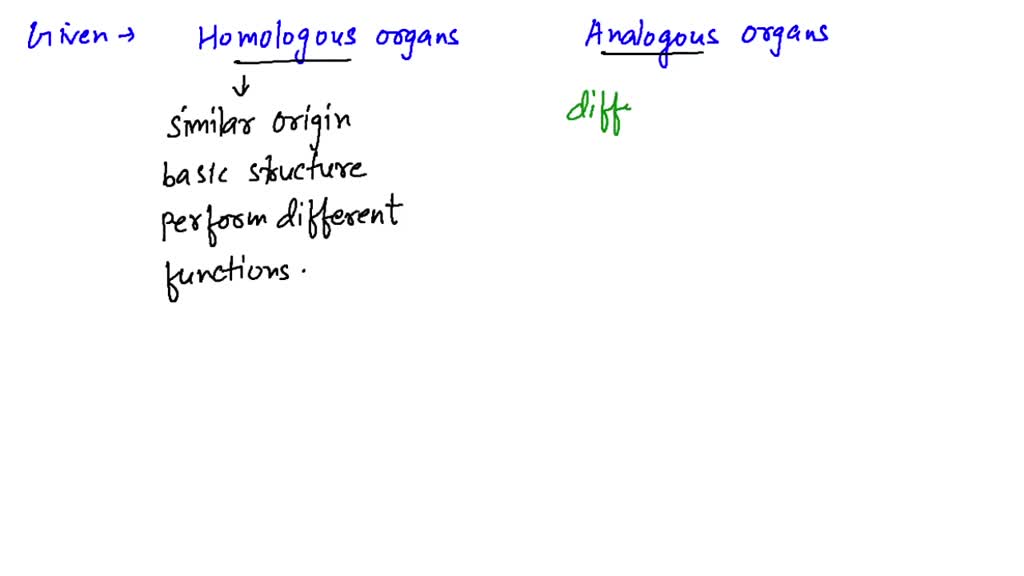 Given → Homologous organs Analogous organs
↓
similar origin diffe
basic structure
perform different
functions.